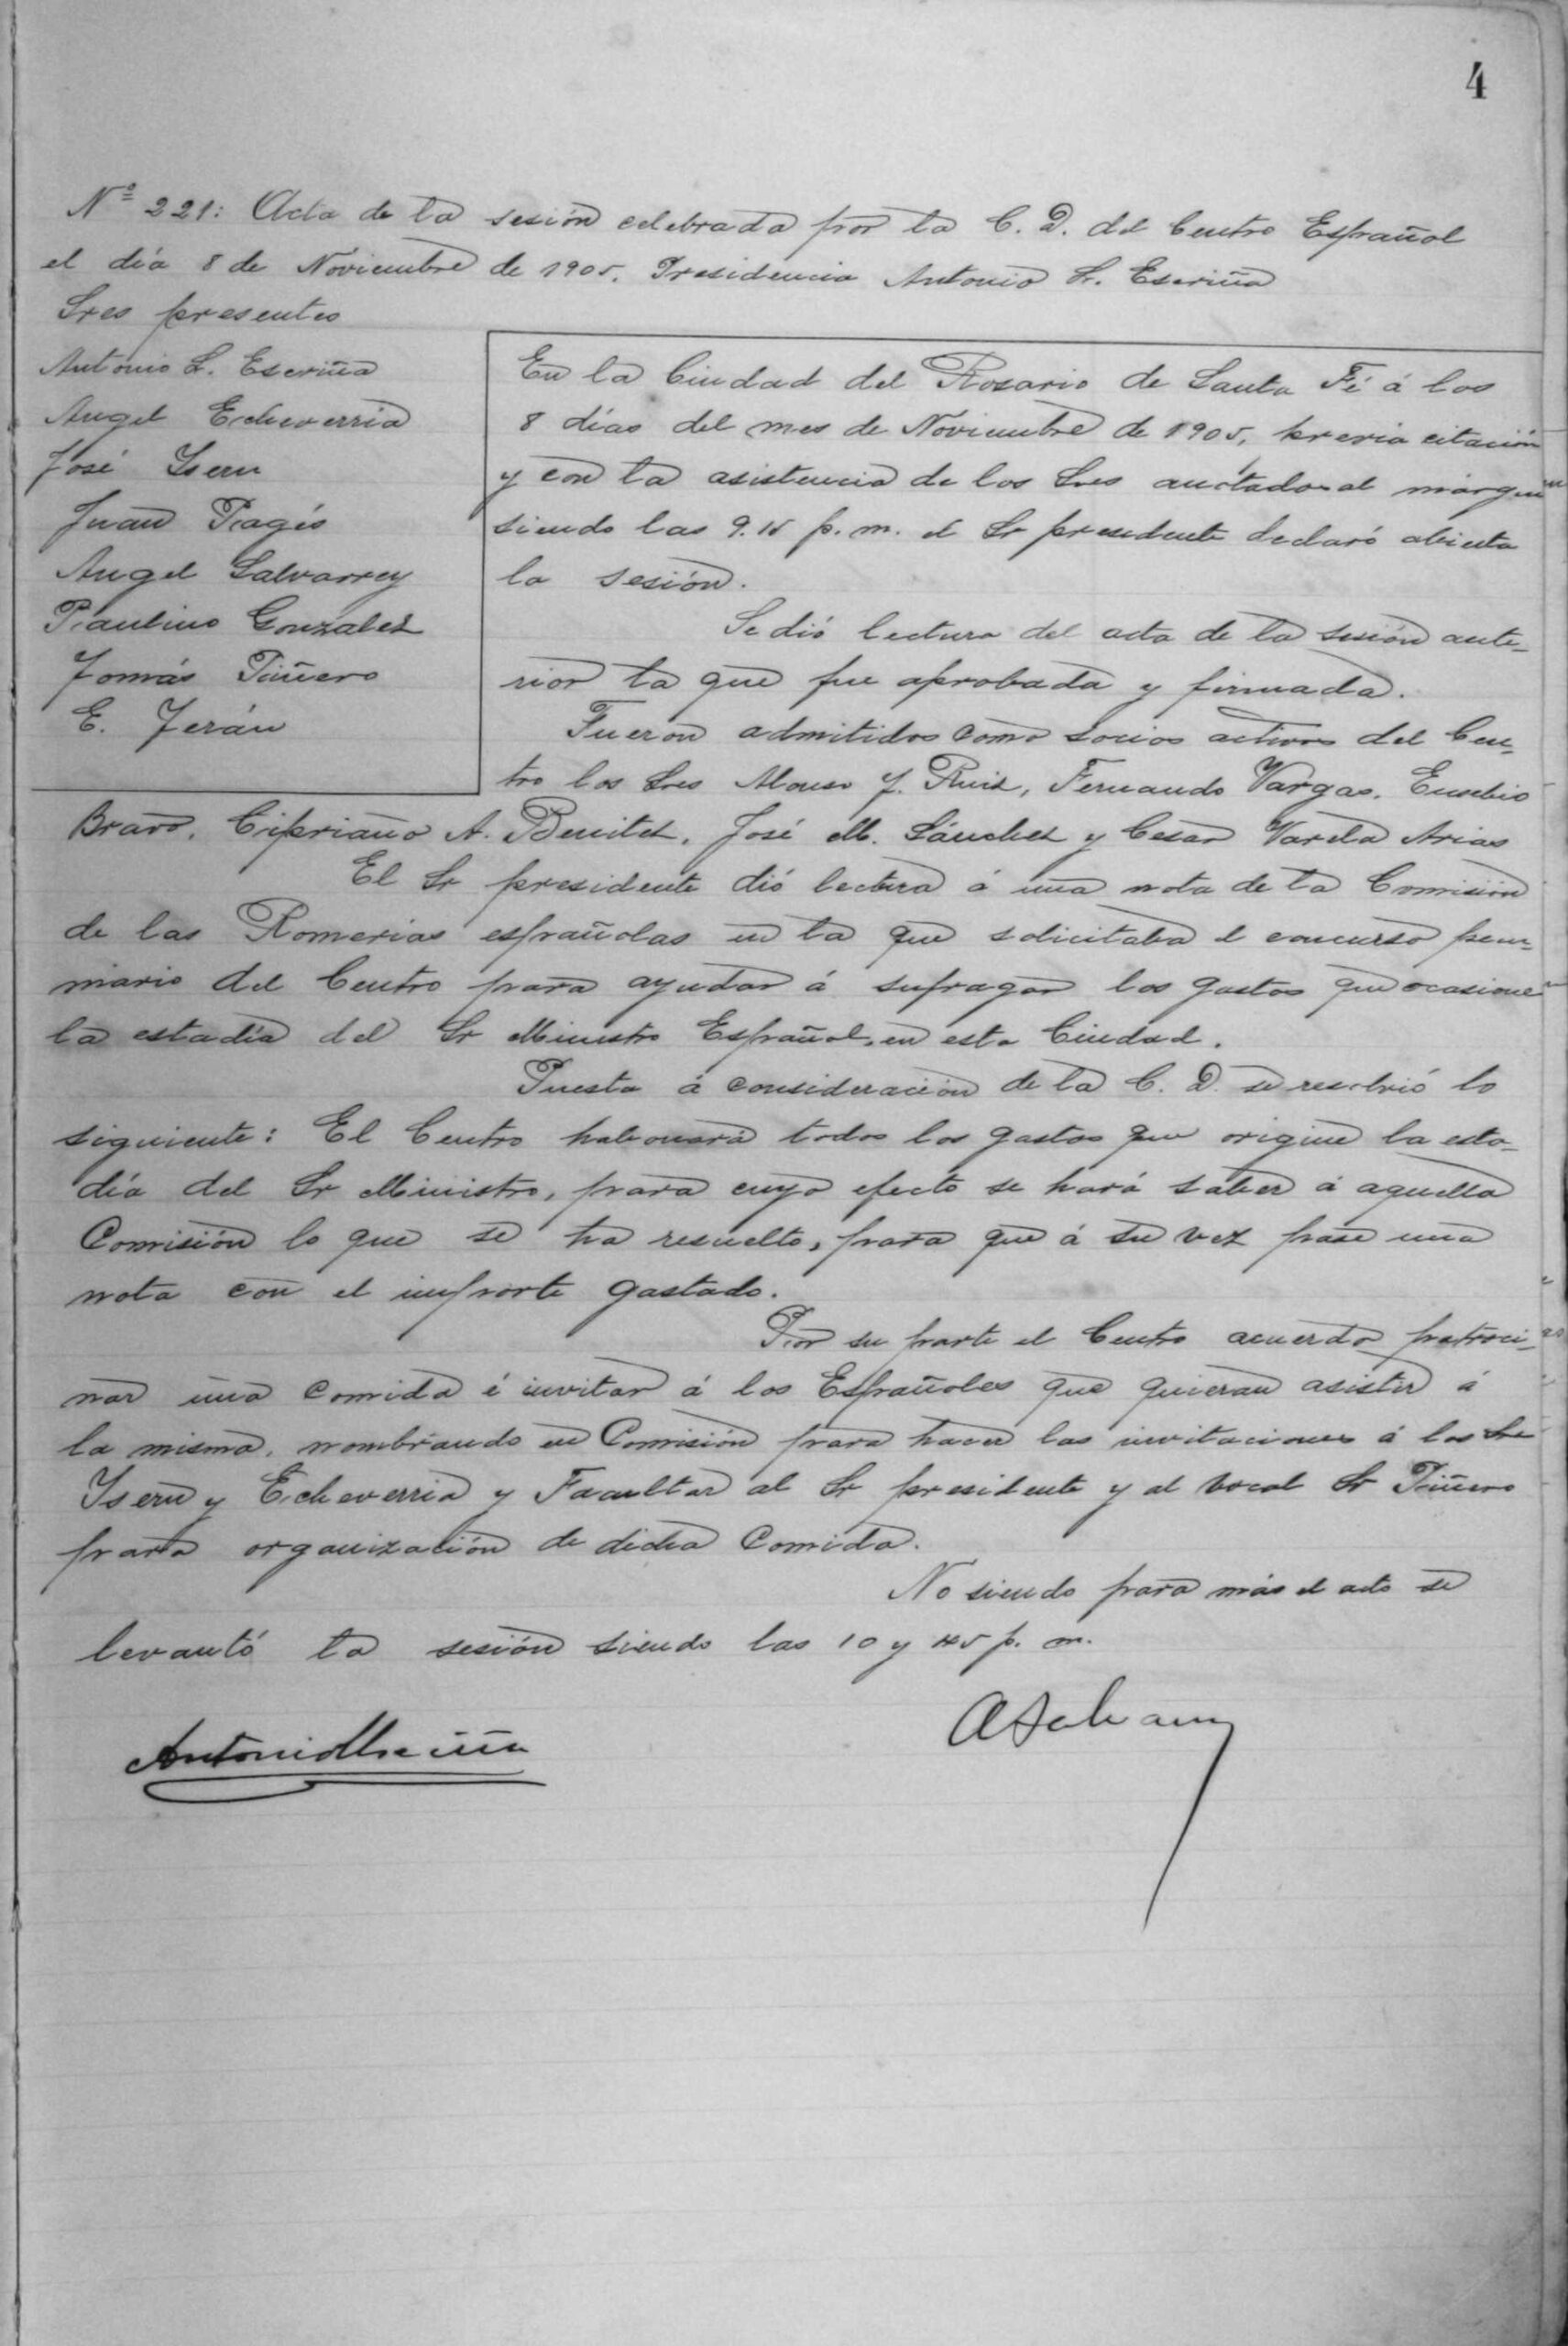 4
Nº 221: Acta de la sesión celebrada por la C. D. del Centro Español
el día 8 de Noviembre de 1905. Presidencia Antonio L. Escriña
Sres presentes
Antonio L. Escriña
Angel Echeverria
José Isern
Juan Pagés
Angel Salvarrey
Paulino Gonzalez
Tomás Piñero
E. Terán
En la Ciudad del Rosario de Santa Fé á los
8 días del mes de Noviembre de 1905, previa citación
y con la asistencia de los Sres anotados al margen
siendo las 9.15 p. m. el Sr presidente declaró abierta
la sesión.
Se dió lectura del acta de la sesión ante-
rior la que fue aprobada y firmada.
Fueron admitidos como socios activos del Cen-
tro los Sres Alonso J. Ruiz, Fernando Vargas, Eusebio
Bravo, Cipriano A. Benitez, José M. Sánchez y Cesar Varela Arias
El Sr presidente dió lectura á una nota de la Comisión
de las Romerias españolas en la que solicitaba el concurso pecu-
niario del Centro para ayudar á sufragar los gastos que ocasione
la estadía del Sr Ministro Español, en esta Ciudad.
Puesta á consideración de la C. D. se resolvió lo
siguiente: El Centro habonará todos los gastos que origine la esta-
día del Sr Ministro, para cuyo efecto se hará saber á aquella
Comisión lo que se ha resuelto, para que á su vez pase una
nota con el importe gastado.
Por su parte el Centro acuerda patroci-
nar una comida é invitar á los Españoles que quieran asistir á
la misma, nombrando en Comisión para hacer las invitaciones á los Sres
Isern y Echeverria y Facultar al Sr presidente y al vocal Sr Piñero
para organización de dicha Comida.
No siendo para más el acto se
levantó la sesión siendo las 10 y 45 p. m.
Antonio Escriña
A Salvarrey